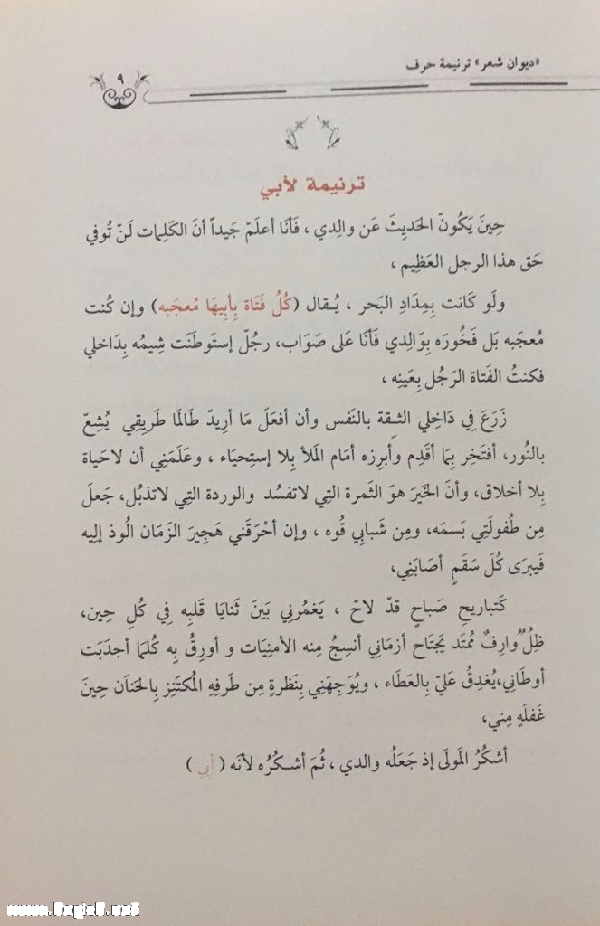 «ديوان شعر» ترنيمة حرف
٩
ترنيمة لأبي
حِينَ يَكُونّ الحَديِثَ عَن والِدي ، فَأنَا أعلَمّ جَيداً أنَ الكَلِمات لَنّ تُوفي
حَق هذا الرجل العَظِيم ،
ولَو كَانت بِمِدَادِ البَحر ، يُـقال (كُلُ فَتَاة بِأبيهَا مُعجَبه) وإن كُنت
مُعجَبه بَل فَخُورَه بِوَالِدي فَأنَا عَلى صَوَاب، رجُلّ إستَوطَنَت شِيمُه بِدَاخلي
فكنتُ الفَتاة الرَجُل بِعَينِه ،
زَرَعَ فِي دَاخِلي الثِـقة بالنَفس وأن أفعَلَ مَا أرِيدَ طَالمَا طَرِيقِي يُشِعّ
بالنُور، أفتَخِر بِمَا أقَدِم وأبرِزه أمَام المَلأ بِلا إستِحيَاء ، وعَلَمَنِي أن لاحَياة
بِلا أخلاق، وأنَ الخَيرَ هوَ الثَمرة التِي لاتفسُد والوردة التِي لاتذبُل، جَعلَ
مِن طُفولَتِي بَسمَه، ومِن شَبابِي قُوه ، وإن أحْرَقَني هَجِيرَ الزَمَان الُوذ إليه
فَيبرَى كُلَ سَقَمٍ أصَابَنِي،
كَتباريحِ صَباحٍ قدّ لاحّ ، يَغمُرنِي بَينَ ثنايَا قَلبِه فِي كُلِ حِين،
ظِلُ وُارِفٌ مُمتَد يَجتَاح أزمَانِي أنسِجُ مِنه الأمنِيَات و أورِقُ بِه كُلمَا أجدَبَت
أوطَانِي،يُغدِقُ عَليّ بِالعَطَاء ، ويُوَجِهَنِي بِنَظرةٍ مِن طَرفِهِ المُكتَنِز بِالحَنَان حِينَ
غَفلَهٍ مِني،
أشكُرُ المَولَى إذ جَعَلُه والدي ، ثُمَ أشـكُرُه لأنَه ( أبِي )